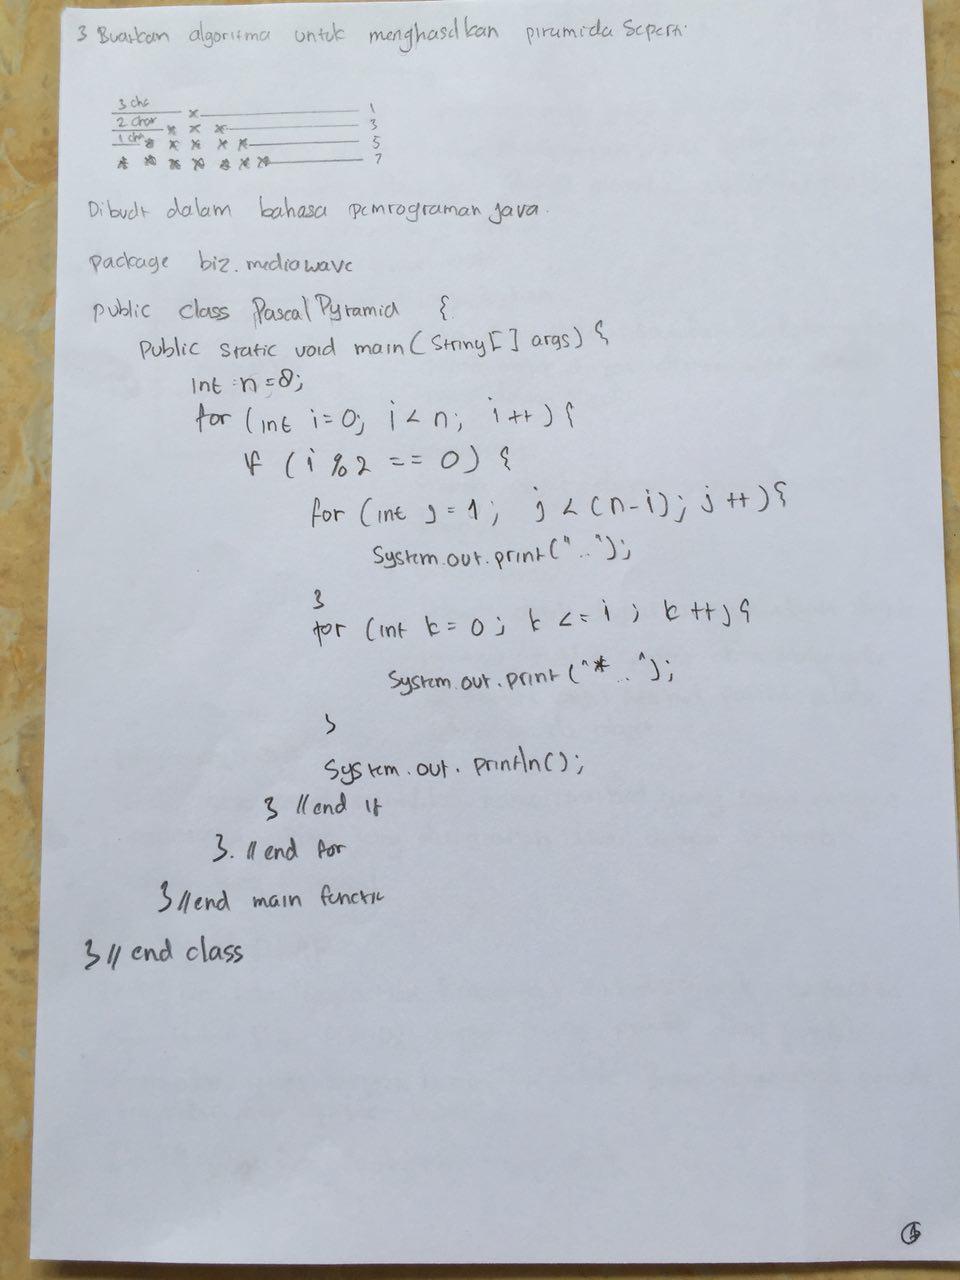 3 Buatkan algoritma untuk menghasilkan piramida seperti
3 cha * 1
2 char * * * 3
1 cha * * * * * 5
* * * * * * * 7
Dibuat dalam bahasa pemrograman java.
package biz.mediawave
public class PascalPyramid {
public static void main(String[] args) {
int n=8;
for (int i=0; i<n; i++) {
if (i%2 == 0) {
for (int j=1; j<(n-i); j++){
System.out.print("..");
}
for (int k=0; k<=i; k++){
System.out.print("*..");
}
System.out.println();
} //end if
}. //end for
} //end main functic
} // end class